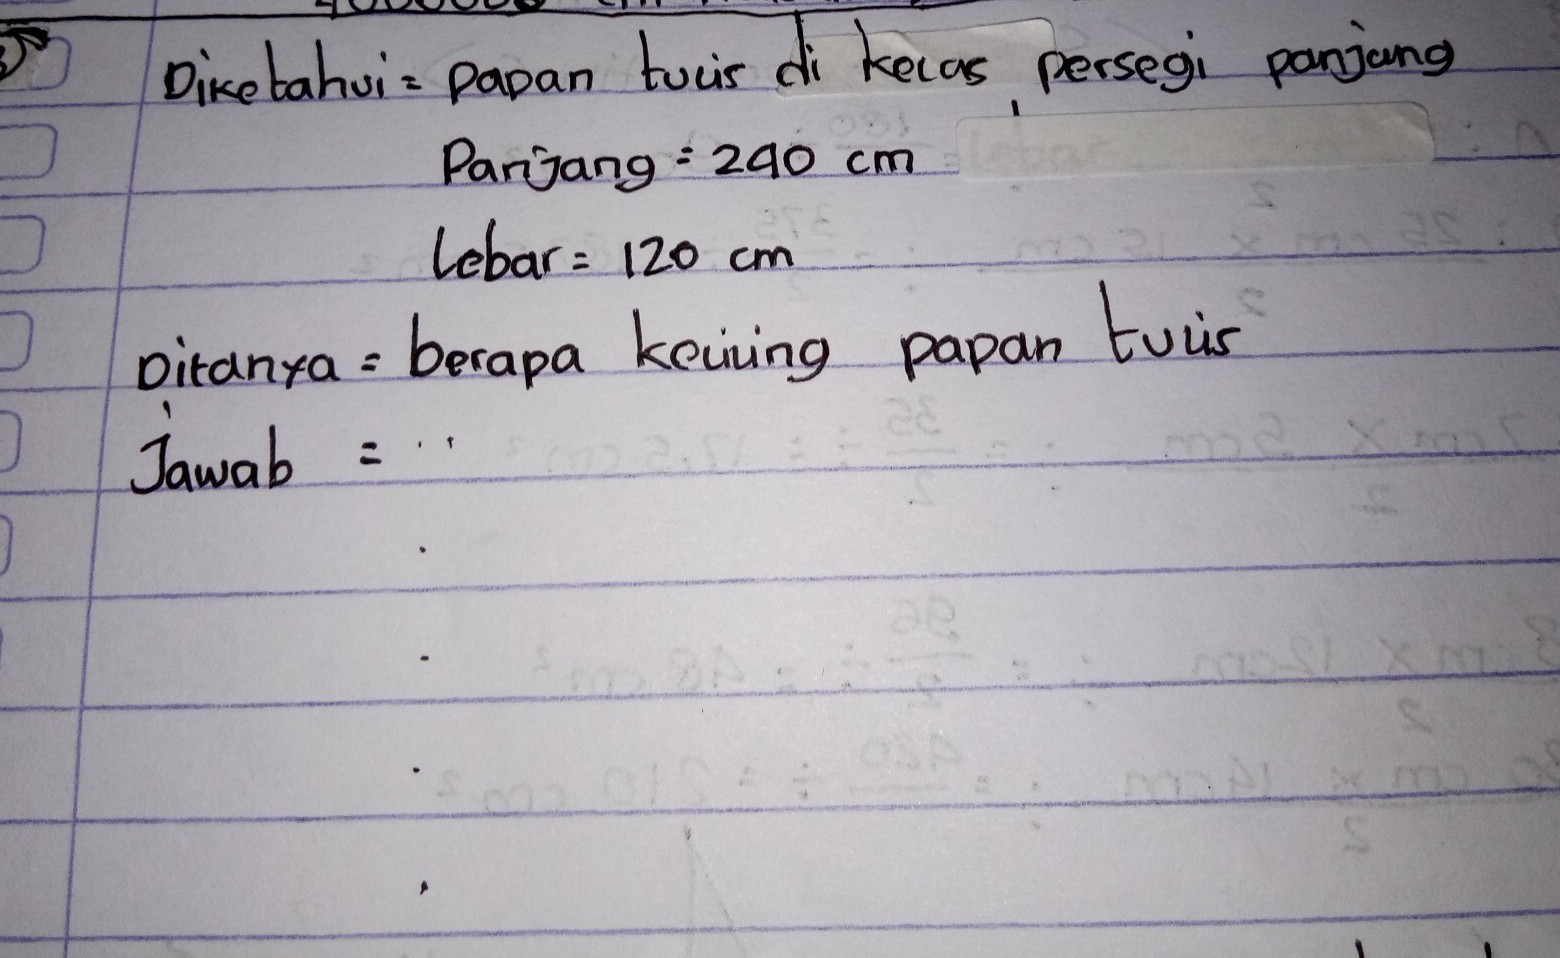 Diketahui = papan tulis di kelas persegi panjang
Panjang = 240 cm
Lebar = 120 cm
Ditanya = berapa keliling papan tulis
Jawab = . .
.
.
.
.